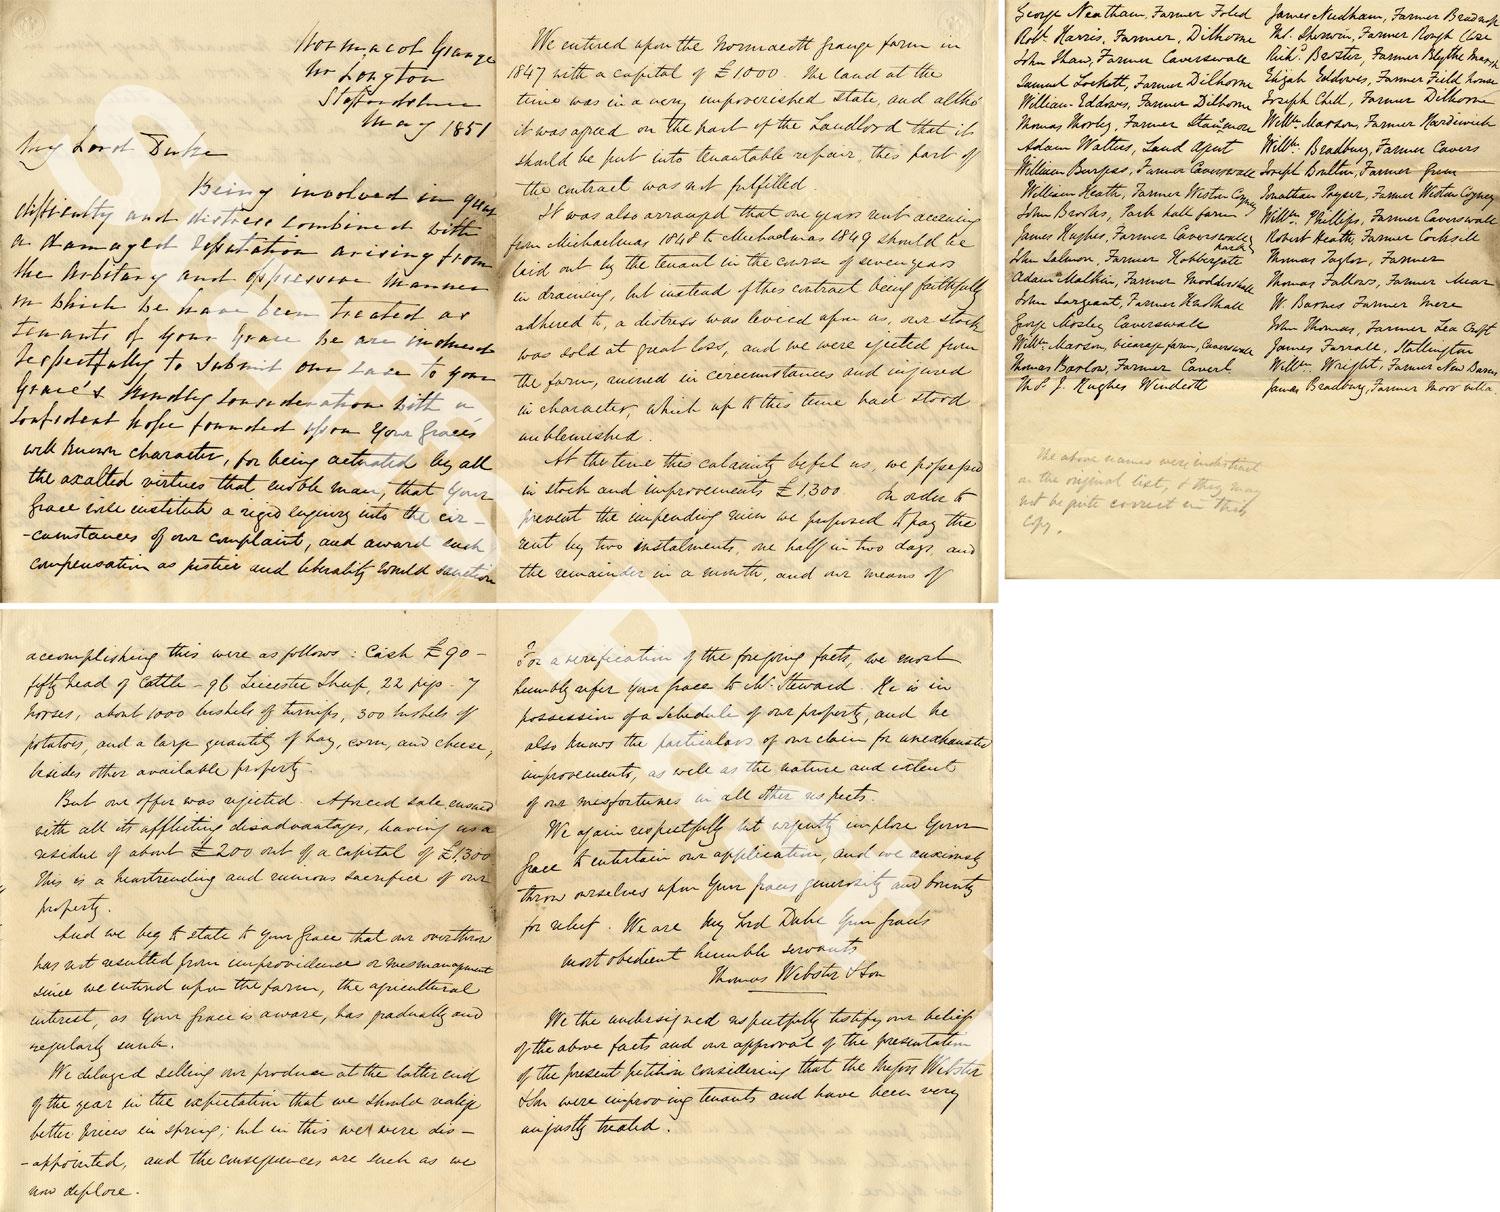 Normacot Grange
Nr Longton
Staffordshire
May 1851
My Lord Duke
Being involved in great
difficulty and distress combined with
a damaged reputation arising from
the Arbitary and oppressive manner
in which we have been treated as
tenants of your Grace we are induced
respectfully to submit our case to your
Grace's kindly consideration with a
confident hope founded upon Your Grace's
well known character, for being actuated by all
the exalted virtues that enoble man, that Your
Grace will institute a rigid enquiry into the cir-
-cumstances of our complaint, and award such
compensation as justice and liberality would sanction
We entered upon the Normacott Grange farm in
1847 with a capital of £1000. The land at the
time was in a very impoverished state, and altho'
it was agreed on the part of the Landlord that it
should be put into tenantable repair, this part of
the contract was not fulfilled.
It was also arranged that one years rent accruing
from Michaelmas 1848 to Michaelmas 1849 should be
laid out by the tenant in the course of seven years
in draining, but instead of this contract being faithfully
adhered to, a distress was levied upon us, our stock
was sold at great loss, and we were ejected from
the farm, ruined in circumstances and injured
in character, which up to this time had stood
unblemished.
At the time this calamity befel us, we possessed
in stock and improvements £1300. In order to
prevent the impending ruin we proposed to pay the
rent by two instalments, one half in two days, and
the remainder in a month, and our means of
accomplishing this were as follows: Cash £90 -
fifty head of Cattle - 96 Leicester Sheep, 22 pigs - 7
horses, about 1000 bushels of turnips, 300 bushels of
potatoes, and a large quantity of hay, corn, and cheese,
besides other available property.
But our offer was rejected. A forced sale ensued
with all its afflicting disadvantages, leaving us a
residue of about £200 out of a capital of £1300
This is a heartrending and ruinous sacrifice of our
property.
And we beg to state to Your Grace that our overthrow
has not resulted from improvidence or mismanagement
since we entered upon the farm, the agricultural
interest, as Your Grace is aware, has gradually and
regularly sunk.
We delayed selling our produce at the latter end
of the year in the expectation that we should realize
better prices in spring; but in this we were dis-
-appointed, and the consequences are such as we
now deplore.
For a verification of the foregoing facts, we most
humbly refer Your Grace to Mr Steward. He is in
possession of a Schedule of our property, and he
also knows the particulars of our claim for unexhausted
improvements, as well as the nature and extent
of our misfortunes in all other respects.
We again respectfully but urgently implore Your
Grace to entertain our application, and we anxiously
throw ourselves upon Your Graces generosity and bounty
for relief. We are My Lord Duke Your Grace's
most obedient humble servants
Thomas Webster & Son
We the undersigned respectfully testify our belief
of the above facts and our approval of the presentation
of the present petition considering that the Messrs Webster
& Son were improving tenants and have been very
unjustly treated.
George Neatham, Farmer Foled
Robt. Harris, Farmer, Dilhorne
John Shaw, Farmer Caverswall
Samuel Lockett, Farmer Dilhorne
William Eddows, Farmer Dilhorne
Thomas Thorley, Farmer
Adam Walters, Land Agent
William Burgess, Farmer Caverswall
William Heath, Farmer Weston Coyney
John Brooks, Park hall farm
James Hughes, Farmer Caverswall
John Salmon, Farmer
Adam Malkin, Farmer
John Sargeant, Farmer
George Mosley Caverswall
Willm. Marson, Vicarage farm, Caverswall
Thomas Barlow, Farmer
Thos. J. Hughes
James Needham, Farmer
Thos. Sherwin, Farmer Rough Close
Richd. Broster, Farmer Blythe Marsh
Elijah Eddowes, Farmer Field house
Joseph Chell, Farmer Dilhorne
Willm. Marson, Farmer Hardiwick
Willm. Bradbury, Farmer
Joseph Boulton, Farmer
Jonathan Poyser, Farmer Weston Coyney
Willm. Phillips, Farmer Caverswall
Robert Heath, Farmer Cocksill
Thomas Taylor, Farmer
Thomas Fallows, Farmer Mear
W. Barnes Farmer Mere
John Thomas, Farmer Lea Croft
James Farrall, Stallington
Willm. Wright, Farmer New Barns
James Bradbury, Farmer Moor villa
The above names were indistinct
in the original list, & they may
not be quite correct in this
copy.